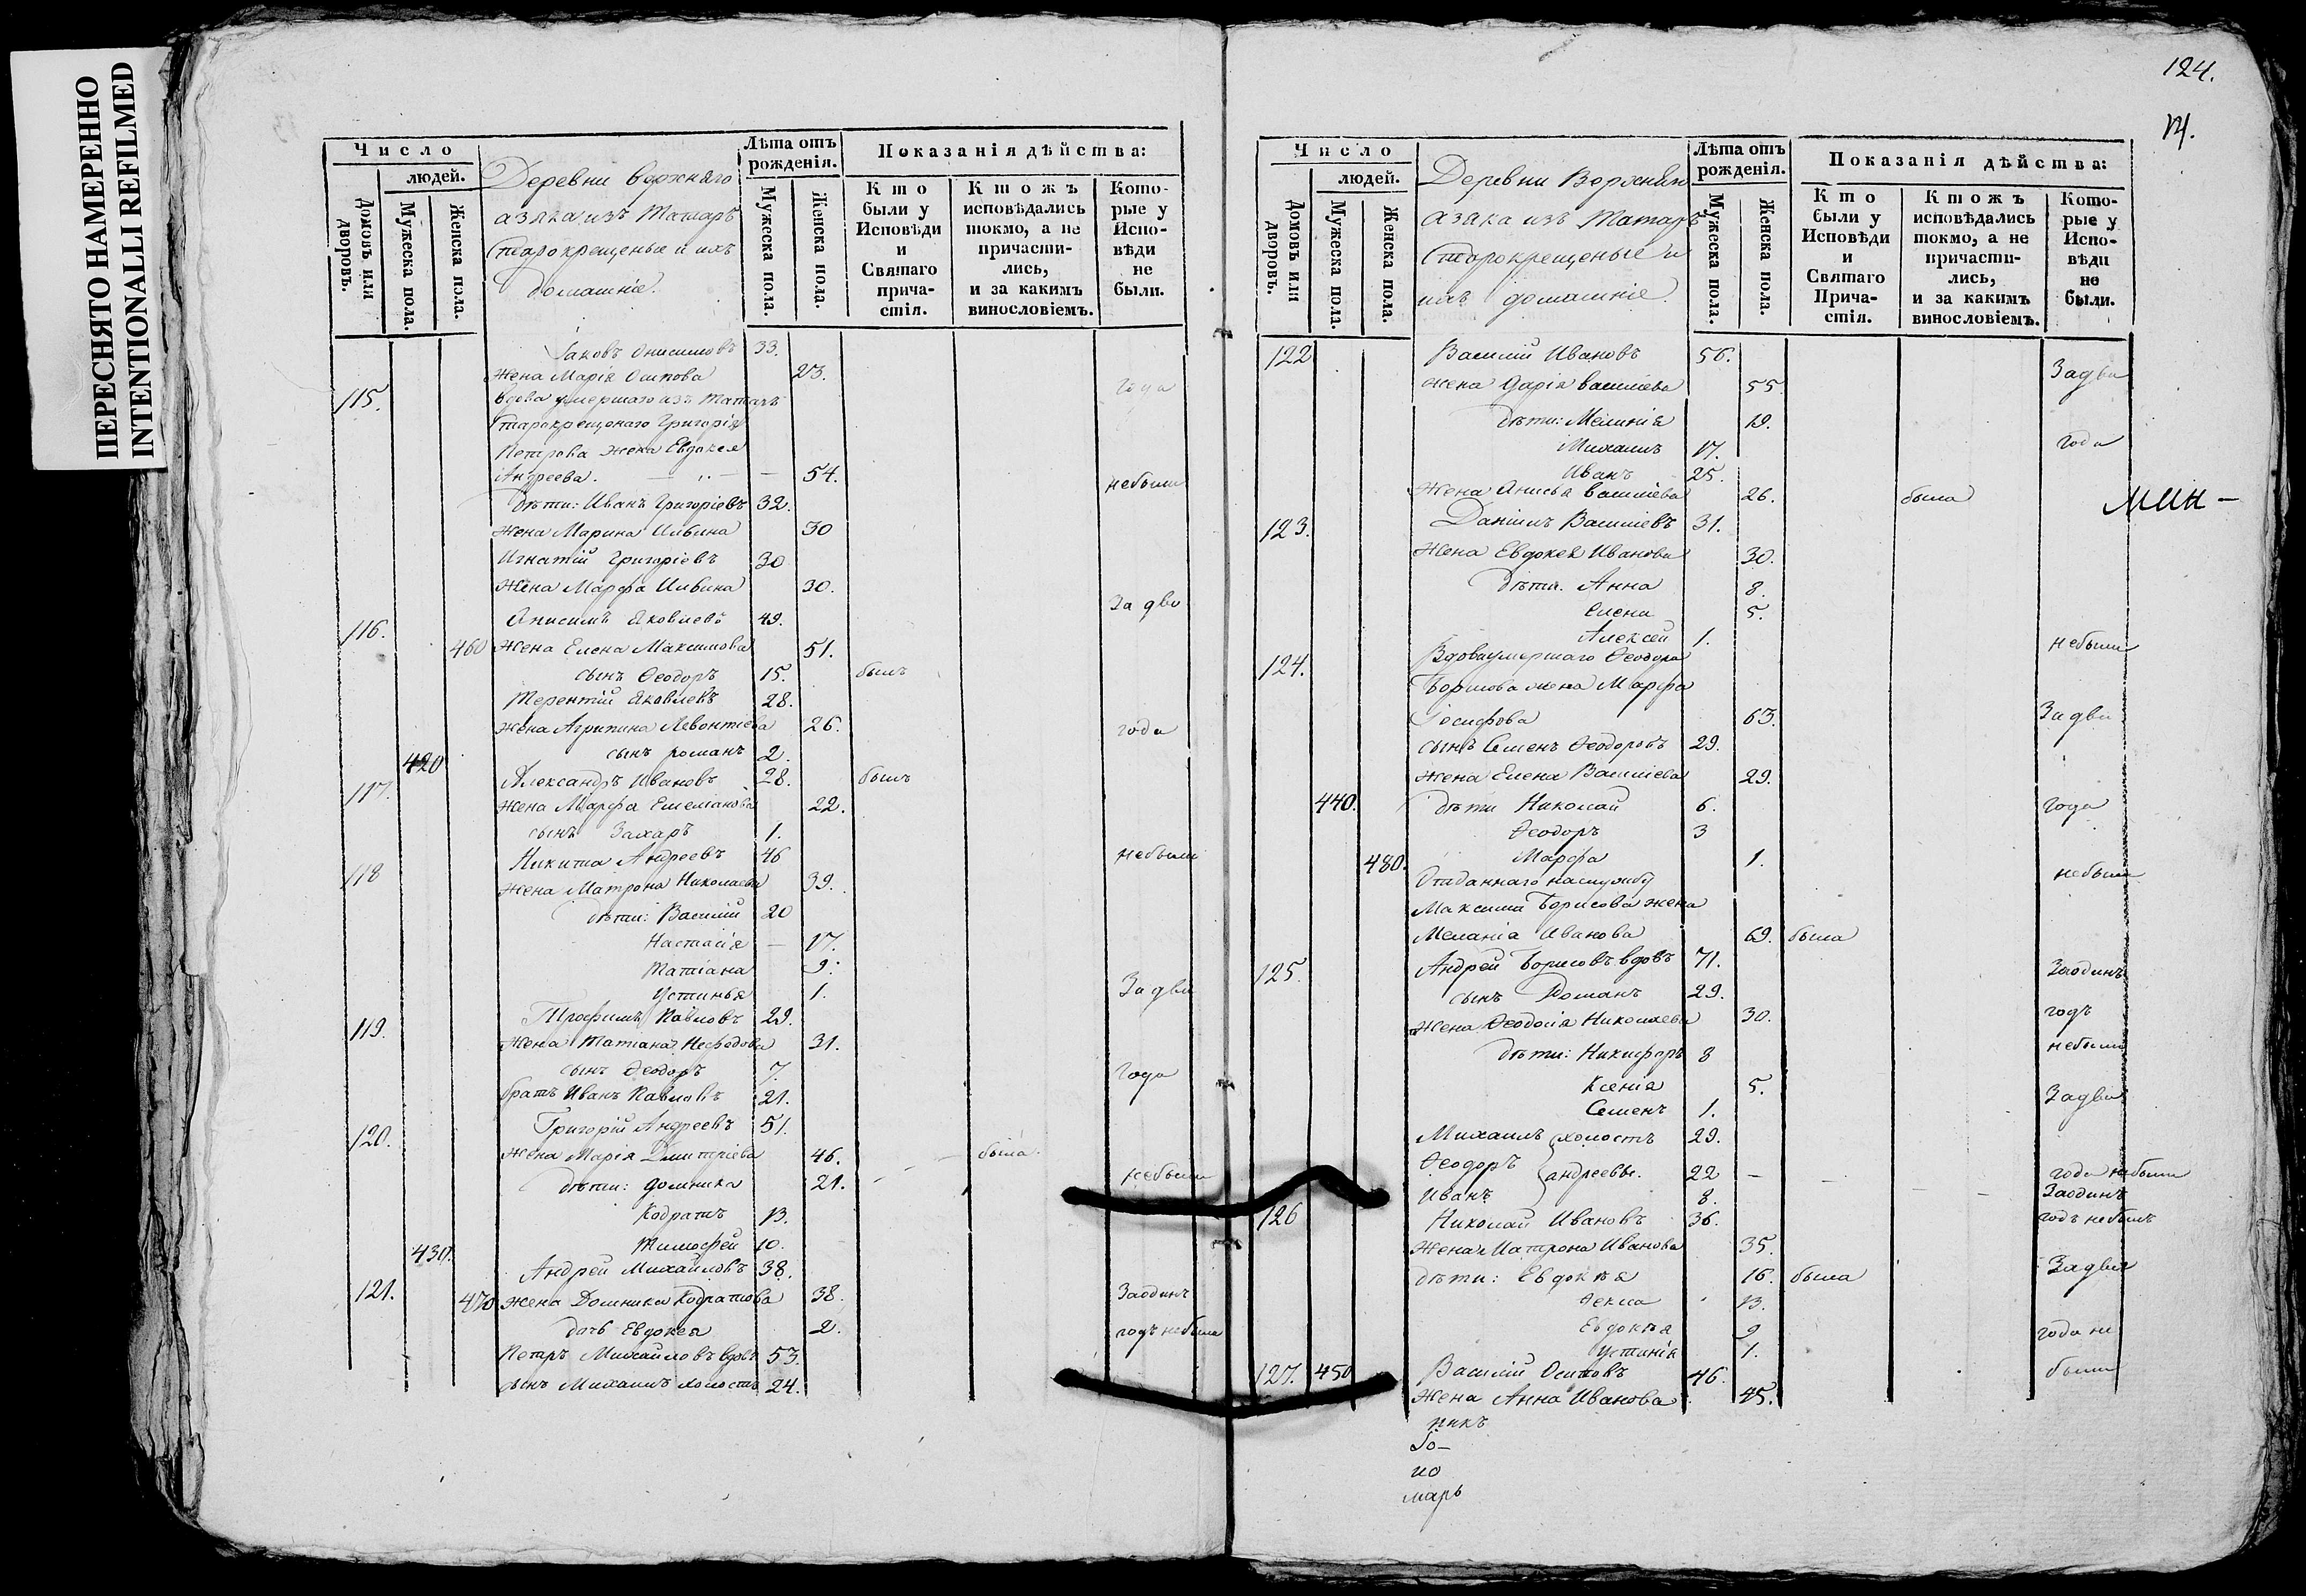 ПЕРЕСНЯТО НАМЕРЕННО
INTENTIONALLI REFILMED
124.
Число
людей.
Домовъ или дворовъ.
Мужеска пола.
Женска пола.
Деревни Верхняго
азяка изъ Татаръ
Старокрещеные и ихъ
домашніе.
Лѣта отъ рожденія.
Мужеска пола.
Женска пола.
Показанія дѣйства:
Кто были у Исповѣди и Святаго причастія.
Ктожъ исповѣдались токмо, а не причастились, и за какимъ винословіемъ.
Которые у Исповѣди не были.
Іаковъ Онисимовъ 33.
жена Марія Осипова 23.
года
115. вдова умершаго изъ Татаръ
Старокрещенаго Григорія
Петрова жена Евдокея
Андреева. 54. небыли
дѣти: Иванъ Григоріевъ 32.
жена Марина Ильина 30
Игнатій Григоріевъ 30
жена Марфа Ильина 30.
За два
116. Анисимъ Яковлевъ 49.
460 жена Елена Максимова 51.
сынъ Ѳеодоръ 15. былъ
Терентій Яковлевъ 28.
жена Агрипина Левонтіева 26. года
420 сынъ романъ 2.
117. Александръ Ивановъ 28. былъ
жена Марфа Емеліанова 22.
сынъ Захаръ 1.
118 Никита Андреевъ 46 небыли
жена Матрона Николаева 39.
дѣти: Василій 20
Настасія — 17.
Татіана 9.
Устинья 1. За два
119. Трофимъ Павловъ 29.
жена Татіана Нефодова 31.
сынъ Ѳеодоръ 7. года
братъ Иванъ Павловъ 21.
120. Григорій Андреевъ 51.
жена Марія Дмитріева 46. была.
дѣти: домника 21. небыли
Кодратъ 13.
430. Тимофей 10.
121. Андрей Михайловъ 38.
470 жена Домника Кодратова 38. Заодинъ
дочь Евдокея 2. годъ небыли
Петръ Михайловъ вдовъ 53.
сынъ Михаилъ холостъ 24.
Число
людей.
Домовъ или дворовъ.
Мужеска пола.
Женска пола.
Деревни Верхняго
азяка изъ Татаръ
Старокрещеные и
ихъ домашніе.
Лѣта отъ рожденія.
Мужеска пола.
Женска пола.
Показанія дѣйства:
Кто были у Исповѣди и Святаго Причастія.
Ктожъ исповѣдались токмо, а не причастились, и за какимъ винословіемъ.
Которые у Исповѣди не были.
122 Василій Ивановъ 56. За два
жена Дарія Василіева 55
дѣти: Меланія 19.
Михаилъ 17. года
Иванъ 25.
жена Анисья Василіева 26. была
мин—
123. Даніилъ Василіевъ 31.
жена Евдокея Иванова 30.
дѣти. Анна 8.
Елена 5.
Алексей 1. небыли
124. Вдова умершаго Ѳеодора
Борисова жена Марфа
Іосифова 63. За два
сынъ Семенъ Ѳеодоровъ 29.
жена Елена Василіева 29.
440. дѣти Николай 6. года
Ѳеодоръ 3
480. Марфа 1.
Отданнаго наслужбу небыли
Максима Борисова жена
Меланіа Иванова 69. была
125. Андрей Борисовъ вдовъ 71. Заодинъ
сынъ Романъ 29.
жена Ѳеодосія Николаева 30. годъ
дѣти: Никифоръ 8 небыли
Ксенія 5. За два
Семенъ 1.
Михаилъ холостъ 29.
Ѳеодоръ андреевы. 22 года небыли
Иванъ 8. Заодинъ
126 Николай Ивановъ 36. годъ небылъ
жена Матрона Иванова 35.
дѣти: Евдокѣя 16. была За два
Ѳекла 13.
Евдокѣя 9 года не
Устинія 1.
127. 450 Василій Осиповъ 46. были
жена Анна Иванова 45.
по-
но
марь